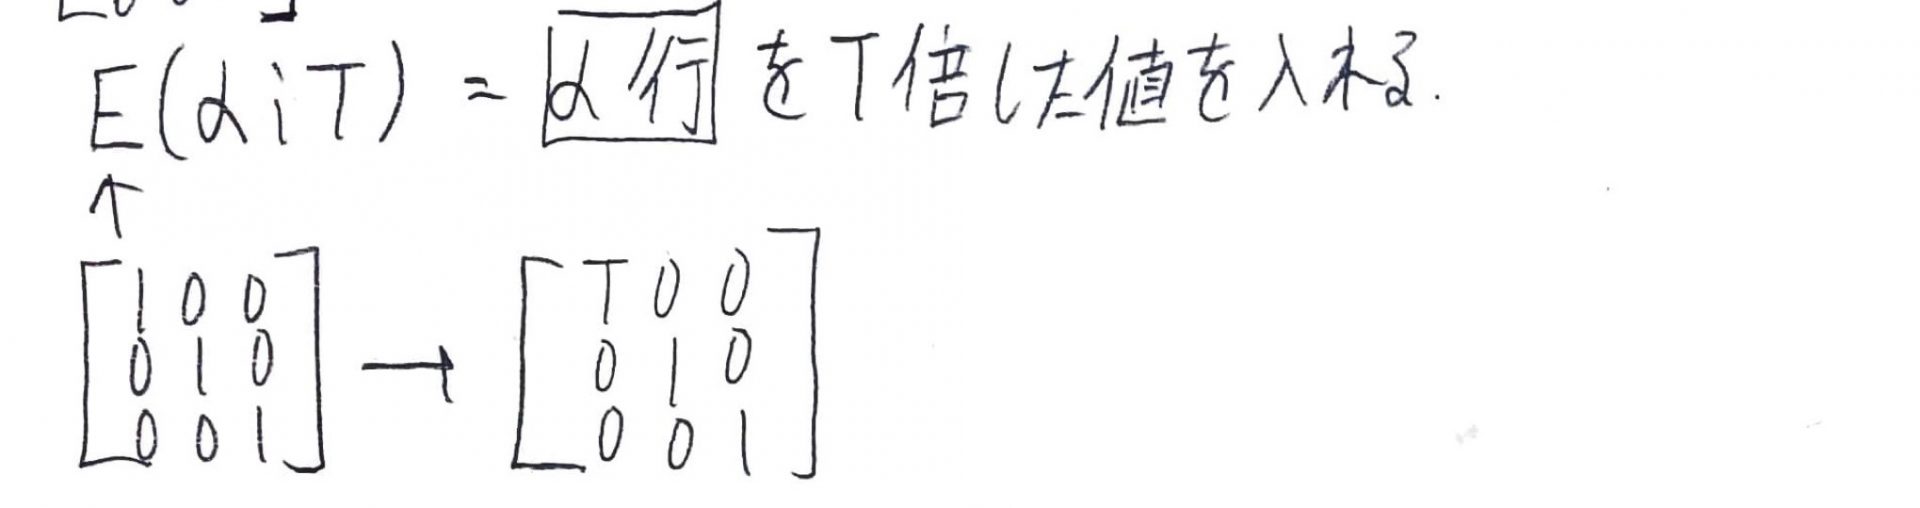 E(α i T) = α行 をT倍した値を入れる.
↑
[1 0 0
0 1 0
0 0 1] → [T 0 0
0 1 0
0 0 1]